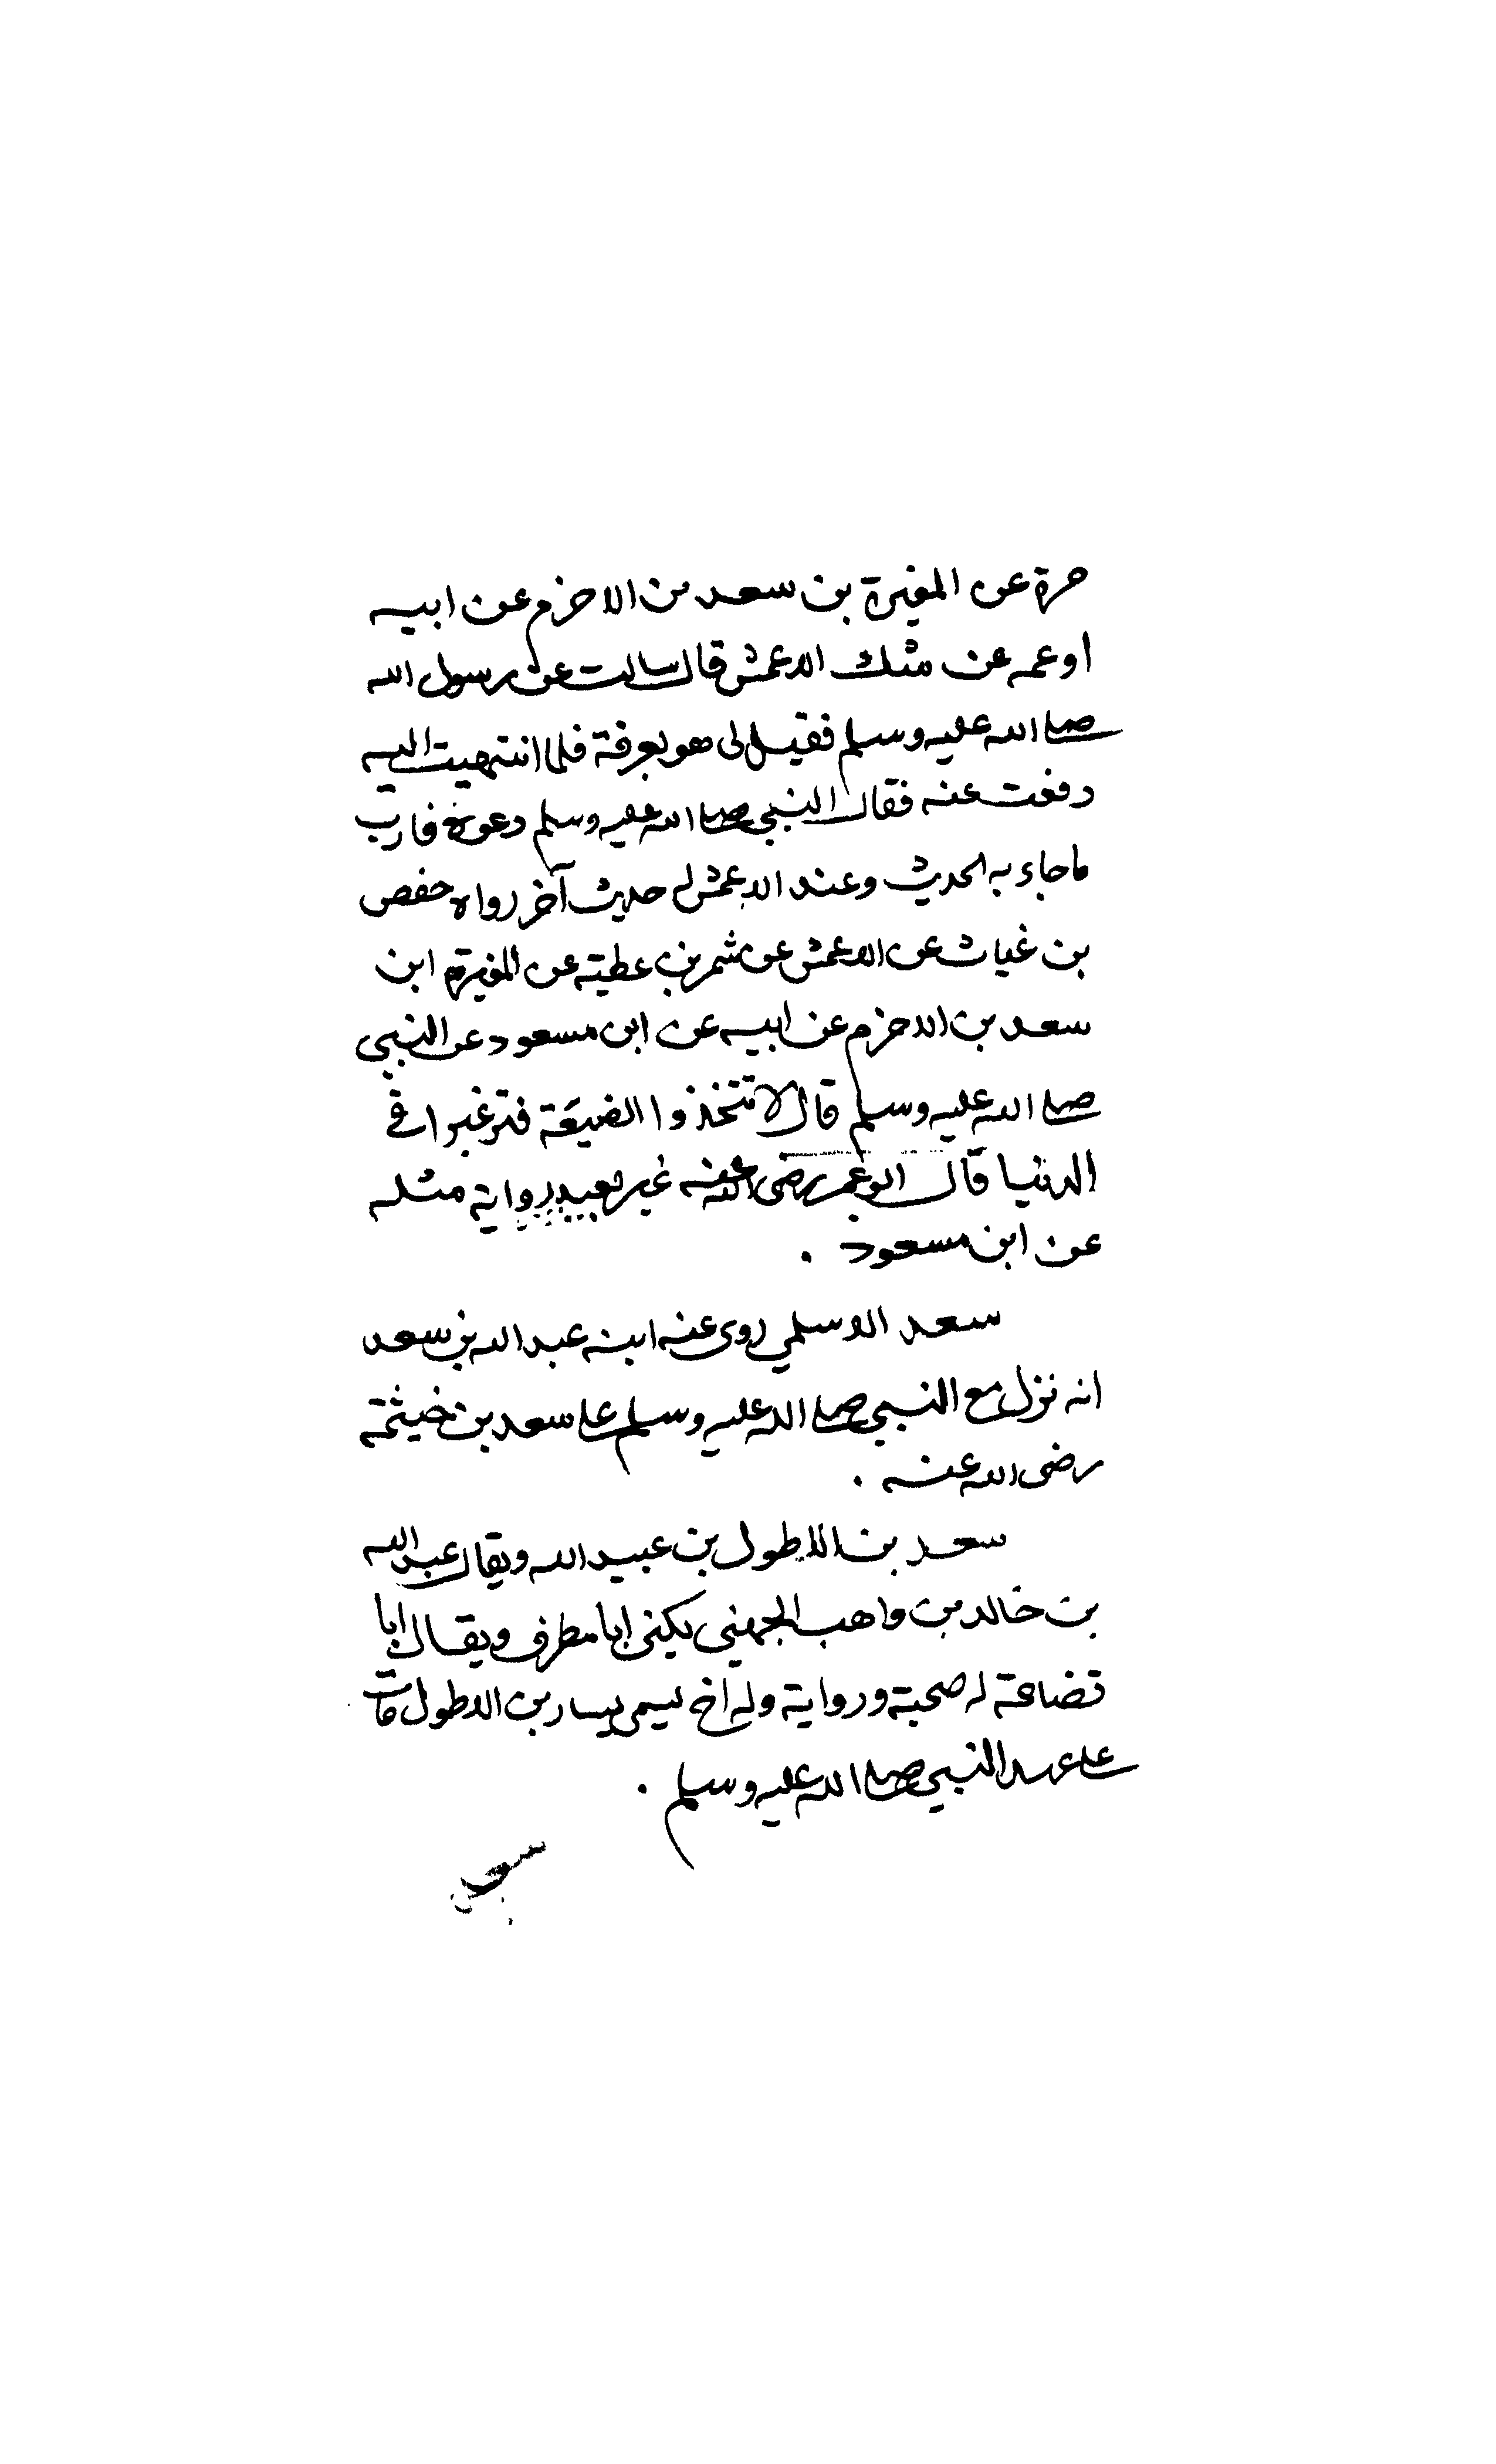 مرة عن المغيرة بن سعد بن الاخرم عن ابيه
او عمه عن مثلك الاعمش قال سالت عن رسول الله
صلى الله عليه وسلم فقيل لى هو بعرفة فلما انتهيت اليه
دفعت عنه فقال النبي صلى الله عليه وسلم دعوه فارب
ما جاء به الحديث وعند الاعمش له حديث آخر رواه حفص
بن غياث عن الاعمش عن شمر بن عطية عن المغيرة ابن
سعد بن الاخرم عن ابيه عن ابن مسعود عن النبي
صلى الله عليه وسلم قال لا تتخذوا الضيعة فترغبوا فى
الدنيا قال ابو عمر رضى الله عنه غير بعيد رواية مثله
عن ابن مسعود .
سعد الاسلمي روى عنه ابنه عبد الله بن سعد
انه نزل مع النبي صلى الله عليه وسلم على سعد بن خيثمة
رضى الله عنه .
سعد بن الاطول بن عبيد الله ويقال عبد الله
بن خالد بن واهب الجهني يكنى ابا مطرف ويقال ابا
قضاعة له صحبة ورواية وله اخ يسمى يسار بن الاطول مات
على عهد النبي صلى الله عليه وسلم .